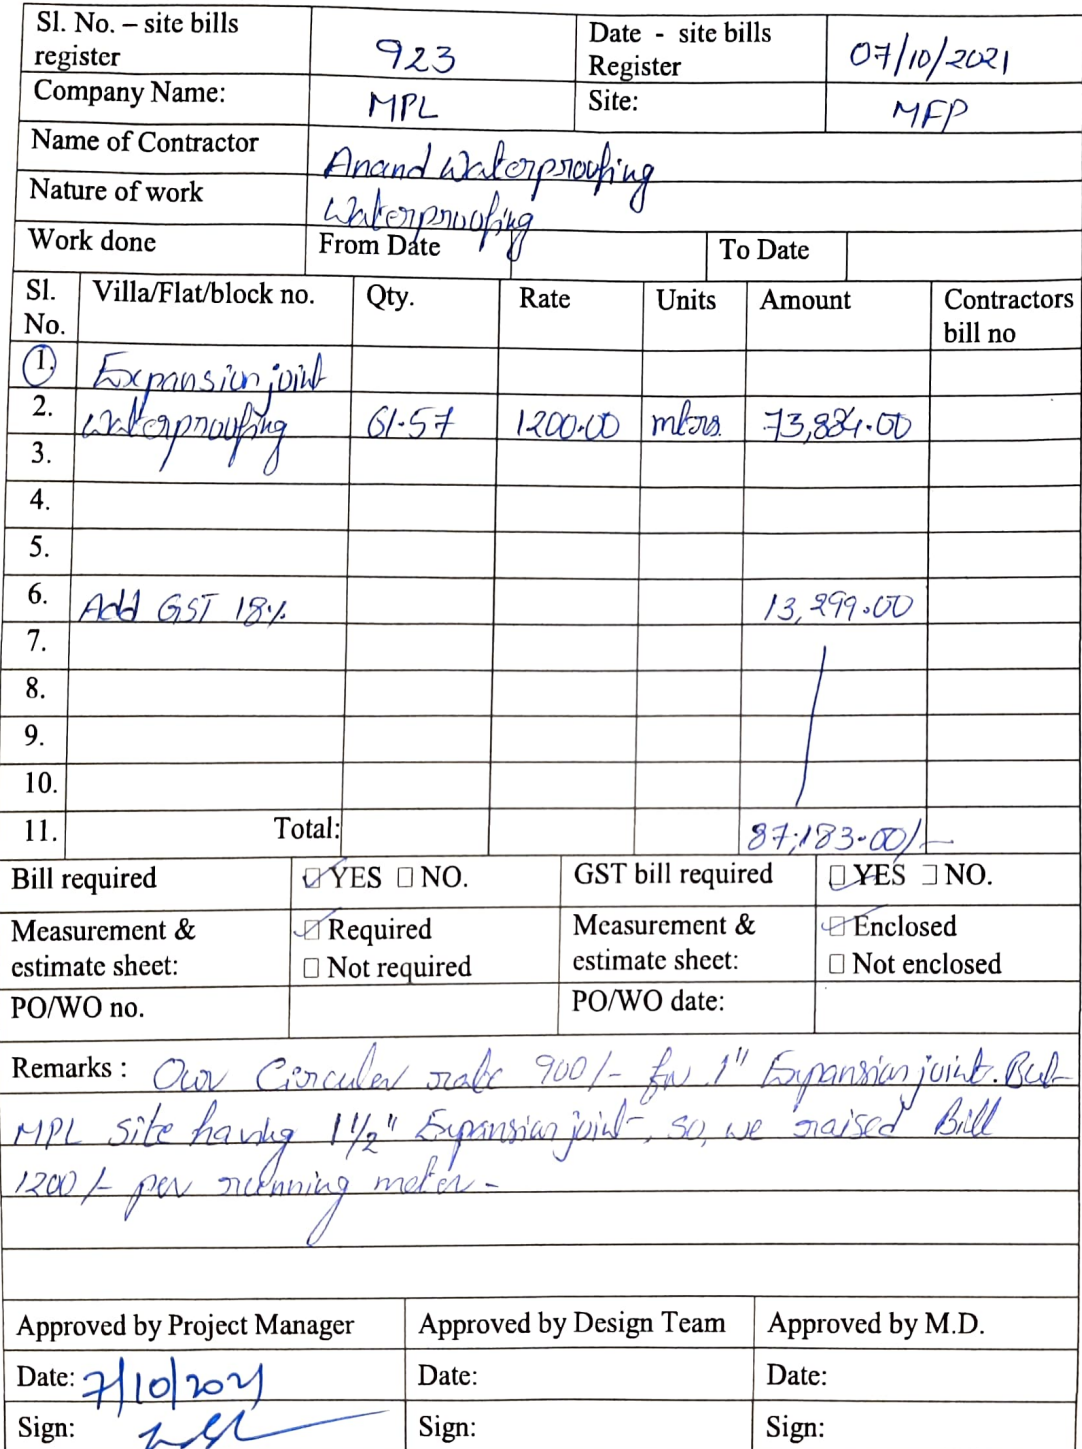 Sl. No. – site bills register 923 Date - site bills Register 07/10/2021
Company Name: MPL Site: MFP
Name of Contractor Anand Waterproofing
Nature of work Waterproofing
Work done From Date To Date
Sl. No. Villa/Flat/block no. Qty. Rate Units Amount Contractors bill no
1. Expansion joint
2. Waterproofing 61.57 1200.00 mtrs. 73,884.00
3.
4.
5.
6. Add GST 18% 13,299.00
7.
8.
9.
10.
11. Total: 87,183.00/-
Bill required YES NO. GST bill required YES NO.
Measurement & estimate sheet: Required Not required Measurement & estimate sheet: Enclosed Not enclosed
PO/WO no. PO/WO date:
Remarks : Our Circular rate 900/- for 1" Expansion joint. But
MPL Site having 1 1/2" Expansion joint, so, we raised Bill
1200/- per running meter-
Approved by Project Manager Approved by Design Team Approved by M.D.
Date: 7/10/2021 Date: Date:
Sign: Sign: Sign: